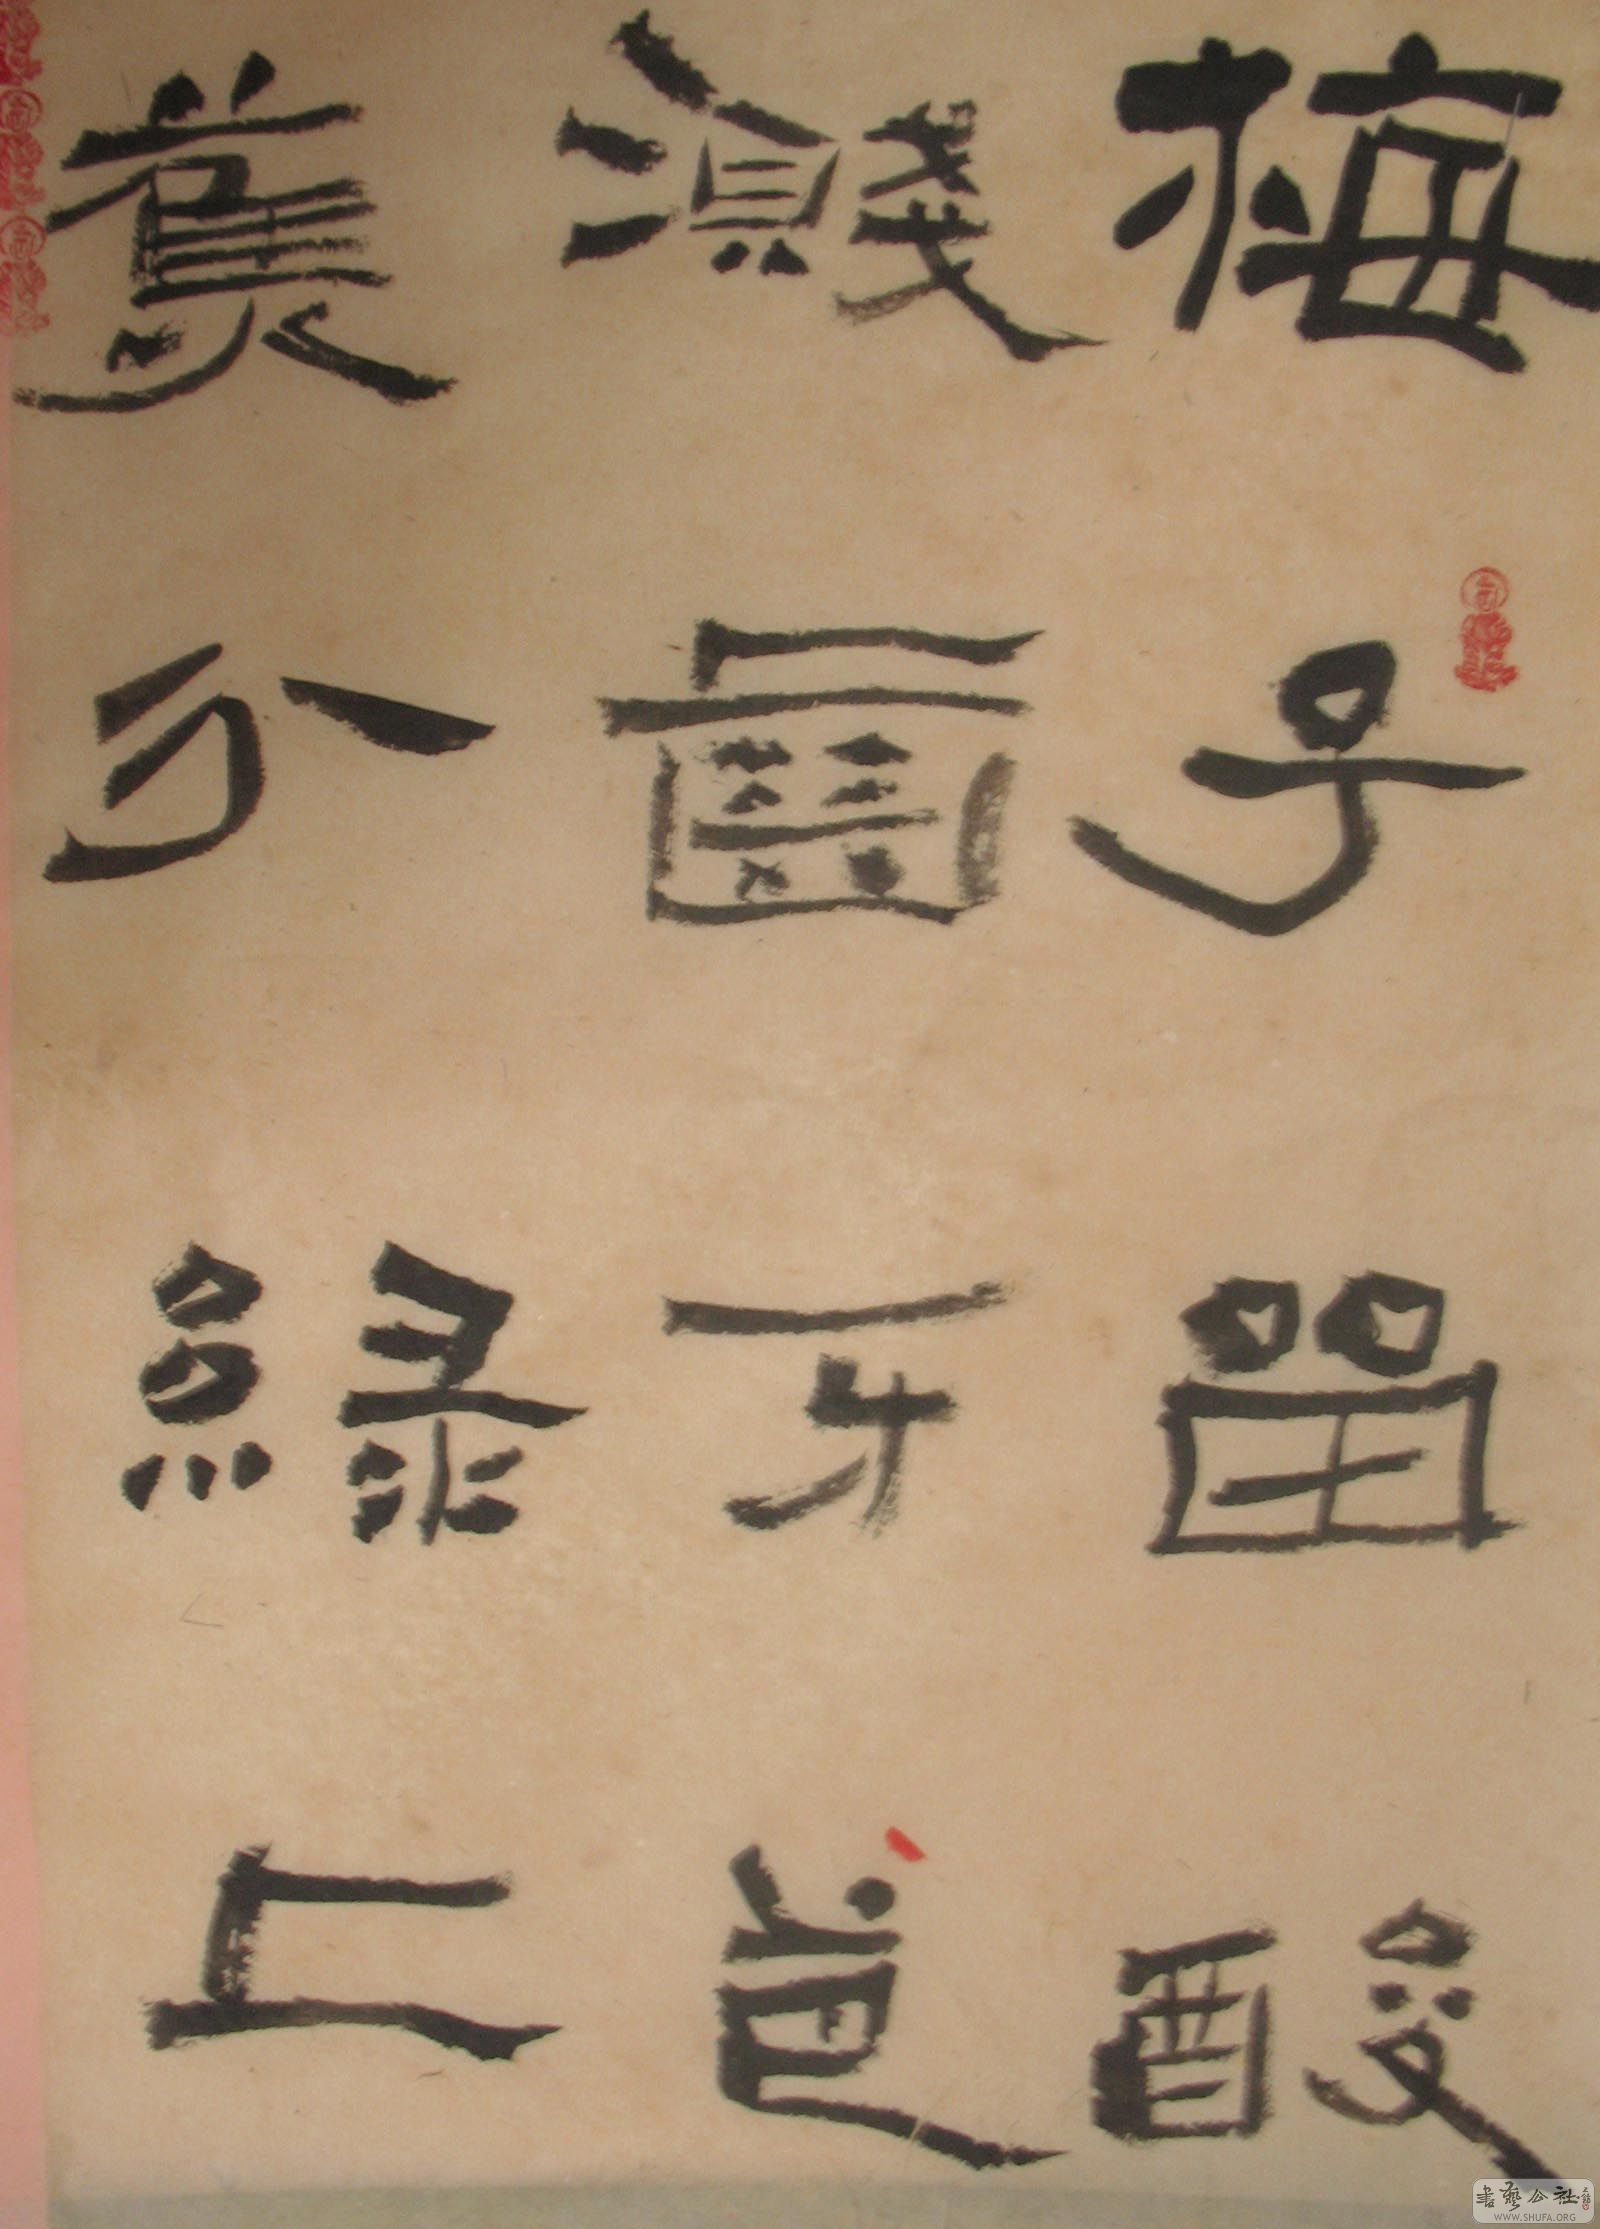 梅子留酸
濺齒牙芭
蕉分綠上
書藝公社
WWW.SHUFA.ORG